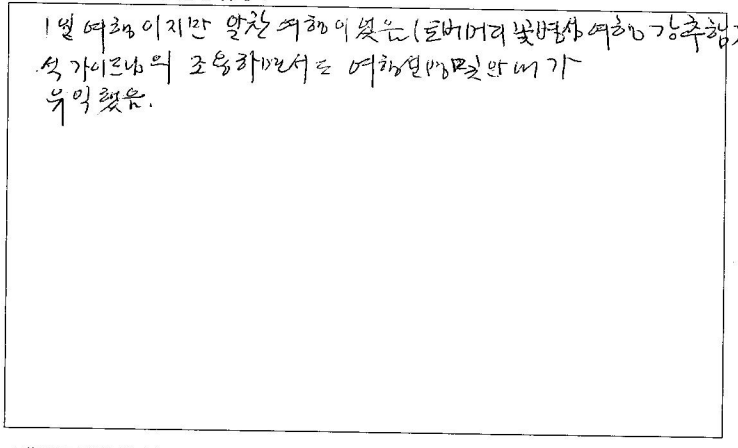 1일 여행이지만 알찬 여행이었음(토버머리 꽃병성 여행 강추함
석 가이드님의 조용하면서도 여행설명및 안내가
유익했음.